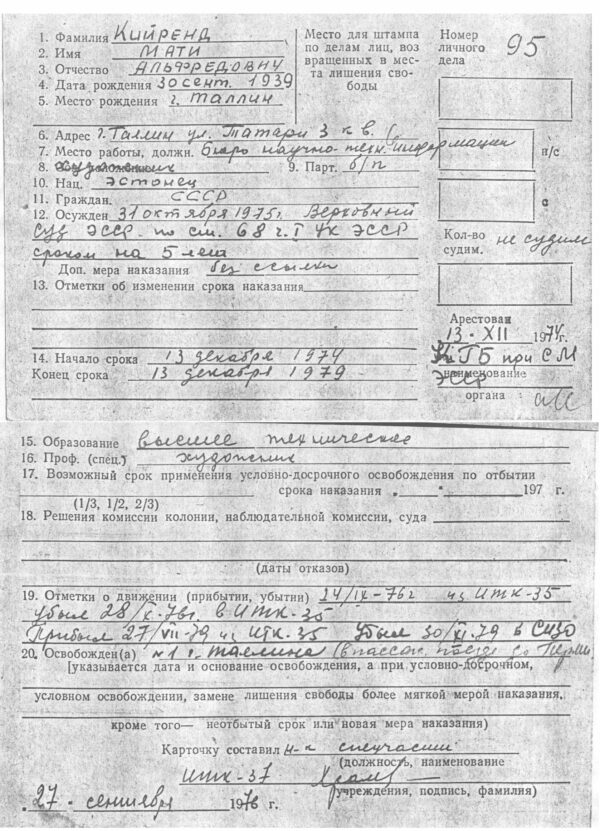 1. Фамилия Кийренд
2. Имя Мати
3. Отчество Альфредович
4. Дата рождения 30 сент. 1939
5. Место рождения г. Таллин
Место для штампа
по делам лиц, воз
вращенных в мес-
та лишения сво-
боды
Номер
личного
дела
95
6. Адрес г. Таллин ул. Татари 3 кв.
7. Место работы, должн. Бюро научно-техн. информации
п/с
8. художник
9. Парт. б/п
10. Нац. эстонец
11. Граждан. СССР
с
12. Осужден 31 октября 1975г. Верховный
суд ЭССР по ст. 68 ч. I УК ЭССР
сроком на 5 лет
Кол-во
судим.
не судим
Доп. мера наказания без ссылки
13. Отметки об изменении срока наказания
Арестован
13 · XII 1974г.
КГБ при СМ
ЭССР
наименование
органа
14. Начало срока 13 декабря 1974
Конец срока 13 декабря 1979
15. Образование высшее техническое
16. Проф. (спец.) художник
17. Возможный срок применения условно-досрочного освобождения по отбытии
срока наказания 197 г.
(1/3, 1/2, 2/3)
18. Решения комиссии колонии, наблюдательной комиссии, суда
(даты отказов)
19. Отметки о движении (прибытии, убытии) 24/IX-76г из ИТК-35
убыл 28/X-76г. в ИТК-35
Прибыл 27/VII-79 из ИТК-35 Убыл 30/XI-79 в СИЗО
20. Освобожден(а) №1 г. Таллина (в пассаж. поезде со ст. Пермь
[указывается дата и основание освобождения, а при условно-досрочном,
условном освобождении, замене лишения свободы более мягкой мерой наказания,
кроме того— неотбытый срок или новая мера наказания)
Карточку составил н-к спецчасти
(должность, наименование
ИТК-37
учреждения, подпись, фамилия)
27 · сентября 1976 г.